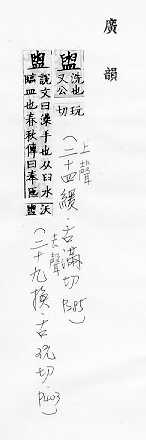 廣韻
盥 洗也又公玩切
(上聲 二十四緩·古滿切 P285)
盥 說文曰澡手也从臼水
臨皿也春秋傳曰奉匜沃盥
(去聲 二十九換·古玩切·P403)